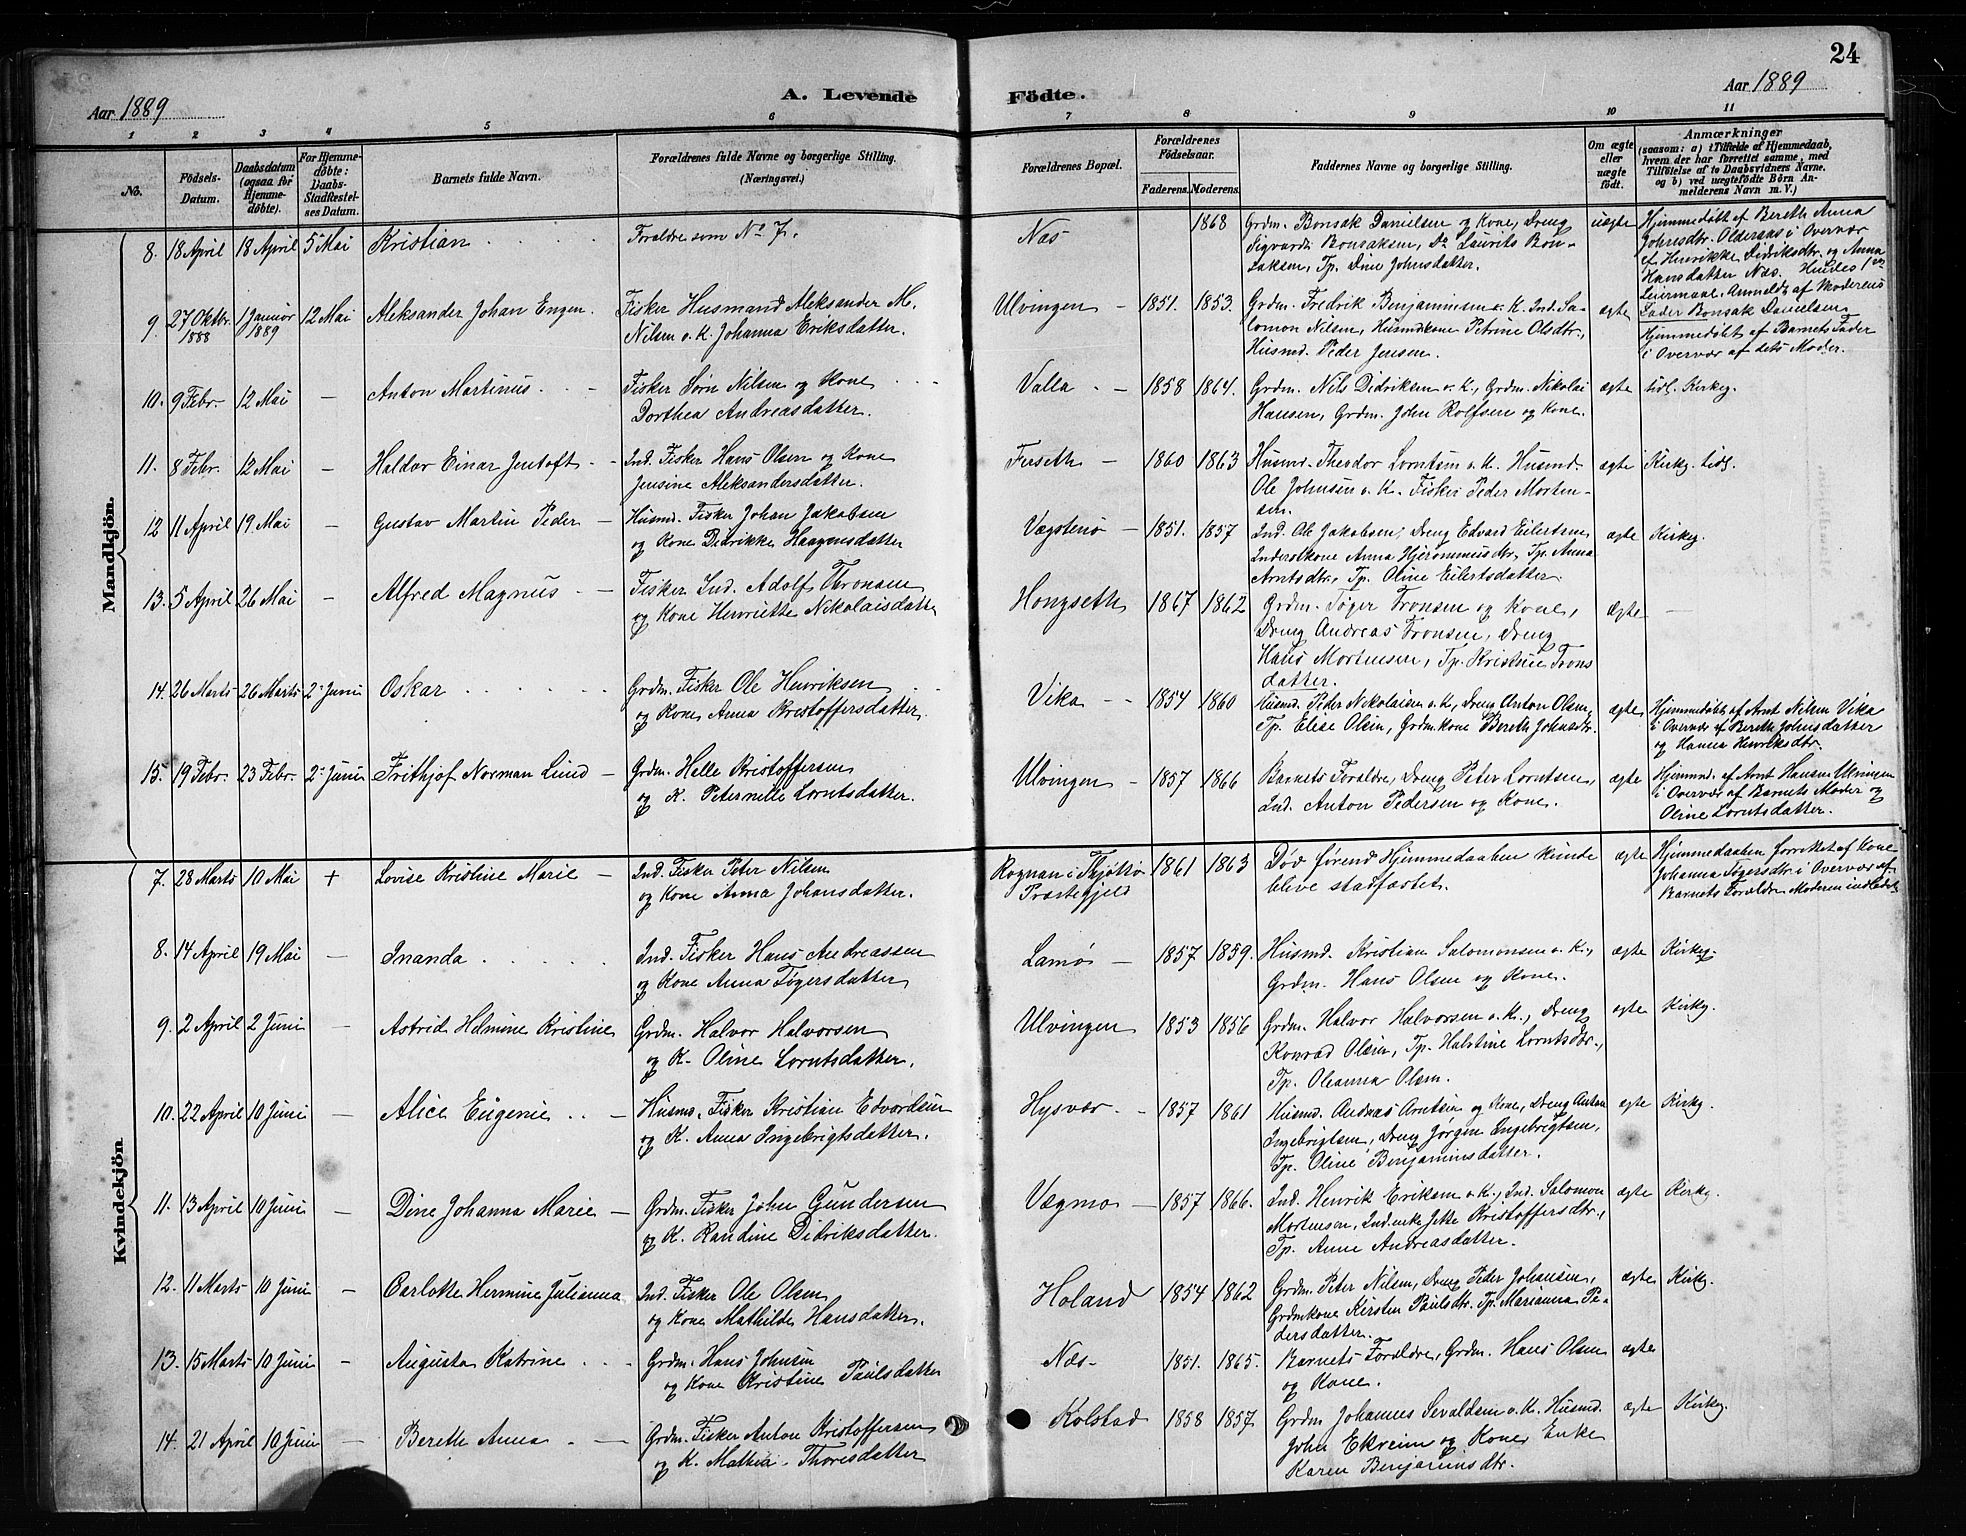 24
Aar 1889
A. Levende
Födte.
Aar 1889
1 2 3 4 5 6 7 8 9 10 11
No.
Födsels-
Datum.
Daabsdatum
(ogsaa for
Hjemme-
døbte).
For Hjemme-
döbte:
Daabs-
Stadfæstel-
ses Datum.
Barnets fulde Navn.
Forældrenes fulde Navne og borgerlige Stilling.
(Næringsvei.)
Forældrenes Bopæl.
Forældrenes
Födselsaar.
Faderens. Moderens.
Faddernes Navne og borgerlige Stilling.
Om ægte
eller
uægte
födt.
Anmærkninger
(saasom: a) i Tilfælde af Hjemmedaab,
hvem der har forrettet samme, med
Tilföielse af to Daabsvidners Navne,
og b) ved uægtefödte Börn An-
melderens Navn m. V.)
Mandkjön.
8. 18 April 18 April 5 Mai Kristian Foraldre som No 7. Nas 1868 Grdm. Bonsak Danielsen og Kone, Dreng
Sigvard Bonsaksen, Do Laurits Bon-
saksen, Tp. Dine Johnsdatter.
uægte Hjemmedøbt af Bereth Anna
Johnsdtr. Olderaas i Overvær
af Henrikke Didriksdtr. og Anna
Hansdatter Næs. Hendes 1ste
Leiermaal. Anmeldt af Moderens
Fader Bonsak Danielsen
9. 27 Oktbr. 1888 1 Januar 1889 12 Mai Aleksander Johan Engen Fisker Husmand Aleksander M.
Nilsen o. K. Johanna Eriksdatter. Ulvingen 1851. 1853. Grdm. Fredrik Benjaminsen o. K. Ind. Sa-
lomon Nilsen, Husmdkone Petrine Olsdtr.,
Husmd. Peder Jensen. ægte Hjemmedøbt af Barnets Fader
i Overvær af dets Moder.
10. 9 Febr. 12 Mai – Anton Martinus Fisker Sørn Nilsen og Kone
Dorthea Andreasdatter. Valla 1858 1864. Grdm. Nils Didriksen o. K., Grdm. Nikolai
Hansen, Grdm. John Rolfsen og Kone. ægte tidl. Kirkeg.
11. 8 Febr. 12 Mai – Haldor Einar Justoft Ind. Fisker Hans Olsen og Kone
Jensine Aleksandersdatter. Forseth 1860 1863 Husmd. Theodor Lorntsen o. K. Husmd.
Ole Johnsen o. K. Fisker Peder Morten-
sen. ægte Kirkg. tidl.
12 11 April 19 Mai – Gustav Martin Peder Husmd. Fisker Johan Jakobsen
og Kone Didrikke Haagensdatter Vægstenø 1851. 1857 Ind. Ole Jakobsen, Dreng Edvard Eilertsen
Inderstkone Anna Hjerommusdtr, Tp. Anna
Arntsdtr, Tp. Oline Eilertsdatter. ægte Kirkg.
13. 5 April 26 Mai – Alfred Magnus Fisker Ind. Adolf Thronsen
og Kone Henriette Nikolaisdatter Hongseth 1867 1862 Grdm. Tøger Tronsen og Kone,
Dreng Andreas Tronsen, Dreng
Hans Mortensen, Tp. Kristine Trons
datter. ægte –
14. 26 Marts 26 Marts 2 Juni Oskar Grdm. Fisker Ole Henriksen
og Kone Anna Kristoffersdatter. Vika 1854 1860 Husmd. Peder Nikolaisen o. K., Dreng Anton Olsen,
Tp. Elise Olsen, Grdm.kone Bereth Johnsdtr. ægte Hjemmedøbt af Arnt Nilsen Vika
i Overvær af Bereth Johnsdatter
og Hanna Henriksdtr.
15. 19 Febr. 23 Febr. 2 Juni Frithjof Norman Lund Grdm. Helle Kristoffersen
og K. Peternelle Lorntsdatter. Ulvingen 1857 1866 Barnets Foraldre, Dreng Peter Lorntsen,
Ind. Anton Pedersen og Kone. ægte Hjemmd. af Arnt Hansen Ulvingen
i Overvær af Barnets Moder og
Oline Lorntsdatter.
Kvindekjön.
7. 28 Marts 10 Mai + Lovise Kristine Marie Ind. Fisker Peter Nilsen
og Kone Anna Johansdatter. Rognan i Thjøttø
Præstegjeld 1861 1863 Død førend Hjemmedaaben kunde
blive stadfæstet. ægte Hjemmedaaben forrettet af Kone
Johanna Tøgersdtr. i Overvær af
Barnets Foraldre. Moderen indledet
8. 14 April 19 Mai – Inanda Ind. Fisker Hans Andreassen
og Kone Anna Tøgersdatter Lamø 1857 1859. Husmd. Kristian Salomonsen o. K.,
Grdm. Hans Olsen og Kone. ægte Kirkeg.
9. 2 April 2 Juni – Astrid Helmine Kristine Grdm. Halvor Halvorsen
og K. Oline Lorntsdatter. Ulvingen 1853 1856 Grdm. Halvor Halvorsen o. K., Dreng
Konrad Olsen, Tp. Halstine Lorntsdtr.,
Tp. Oleanna Olsen. ægte Kirkg.
10. 22 April 10 Juni – Alice Eugenie Husmd. Fisker Kristian Edvardsen
og K. Anna Ingebrigtsdatter. Hysvær 1857 1861 Husmd. Andreas Arntsen og Kone, Dreng Anton
Ingebrigtsen, Dreng Jørgen Ingebrigtsen,
Tp. Oline Benjaminsdatter. ægte Kirkg.
11. 13 April 10 Juni – Dine Johanna Marie Grdm. Fisker John Gundersen
og K. Randine Didriksdatter. Vægmo 1857 1866. Ind. Henrik Eriksen o. K., Ind. Salomon
Mortensen, Ind. enke Jette Kristoffersdtr.,
Tp. Anne Andreasdatter. ægte Kirkg.
12. 11 Marts 10 Juni – Carlotte Hermine Julianna Ind. Fisker Ole Olsen
og Kone Mathilde Hansdatter. Holand 1854 1862 Grdm. Peter Nilsen, Dreng Peder Johansen,
Grdmkone Kirsten Paulsdtr. Tp. Marianna Pe-
dersdatter. ægte Kirkg.
13. 15 Marts 10 Juni – Augusta Katrine Grdm. Hans Johnsen
og Kone Kristine Paulsdatter Næs 1851. 1865. Barnets Foraldre, Grdm. Hans Olsen
og Kone. ægte
14. 21 April 10 Juni – Bereth Anna Grdm. Fisker Anton Kristoffersen
og K. Mathea Thoresdatter Kolstad 1858 1857. Grdm Johannes Sevaldsen o. K. Husmd.
John Ekreim og Kone, Enke
Karen Benjaminsdtr. ægte Kirkg.